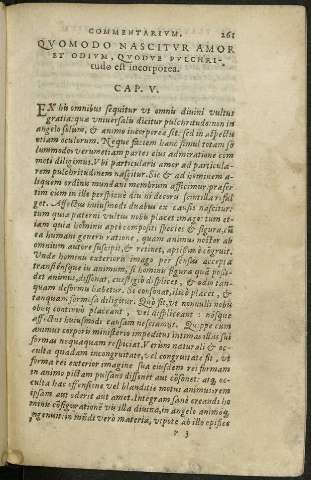 COMMENTARIVM. 261
QVOMODO NASCITVR AMOR
ET ODIVM, QVODVE PVLCHRI-
tudo est incorporea.
CAP. V.
EX his omnibus sequitur vt omnis diuini vultus
gratia, quæ vniuersalis dicitur pulchritudo: non in
angelo solum, & animo incorporea sit: sed in aspectu
etiam oculorum. Neque faciem hanc simul totam so
lummodo: verumetiam partes eius admiratione com
moti diligimus. Vbi particularis amor ad particula-
rem pulchritudinem nascitur. Sic & ad hominem a-
liquem ordinis mundani membrum afficimur: præser
tim cum in illo perspicuè diuini decoris scintilla reful
get. Affectus huiusmodi duabus ex causis nascitur:
tum quia paterni vultus nobis placet imago: tum et-
iam quia hominis aptè compositi species & figura, cū
ea humani generis ratione, quam animus noster ab
omnium autore suscipit, & retinet, aptissimè cōgruit.
Vnde hominis exterioris imago per sensus accepta
transiénsque in animum, si hominis figuræ quā possi-
det animus, dissonat, cuestigio displicet, & odio tan-
quam deformis habetur. Si consonat, ilicò placet, &
tanquam formosa diligitur. Quò fit, vt nonnulli nobis
obuij continuò placeant, vel displiceant: nósque
affectus huiusmodi causam nesciamus. Quippe cum
animus corporis ministerio impeditus intimas illas sui
formas nequaquam respiciat. Verùm naturali & oc-
culta quadam incongruitate, vel congruitate fit, vt
forma rei exterior imagine sua eiusdem rei formam
in animo pictam pulsans dissonet aut cōsonet: atq; oc-
culta hac offensione vel blanditie motus animus rem
ipsam aut oderit aut amet. Integram sanè creandi ho
minis cōfigurationē vis illa diuina, in angelo animoq;
ingenuit: in mūdi verò materia, vtpote ab illo opifice
r 3